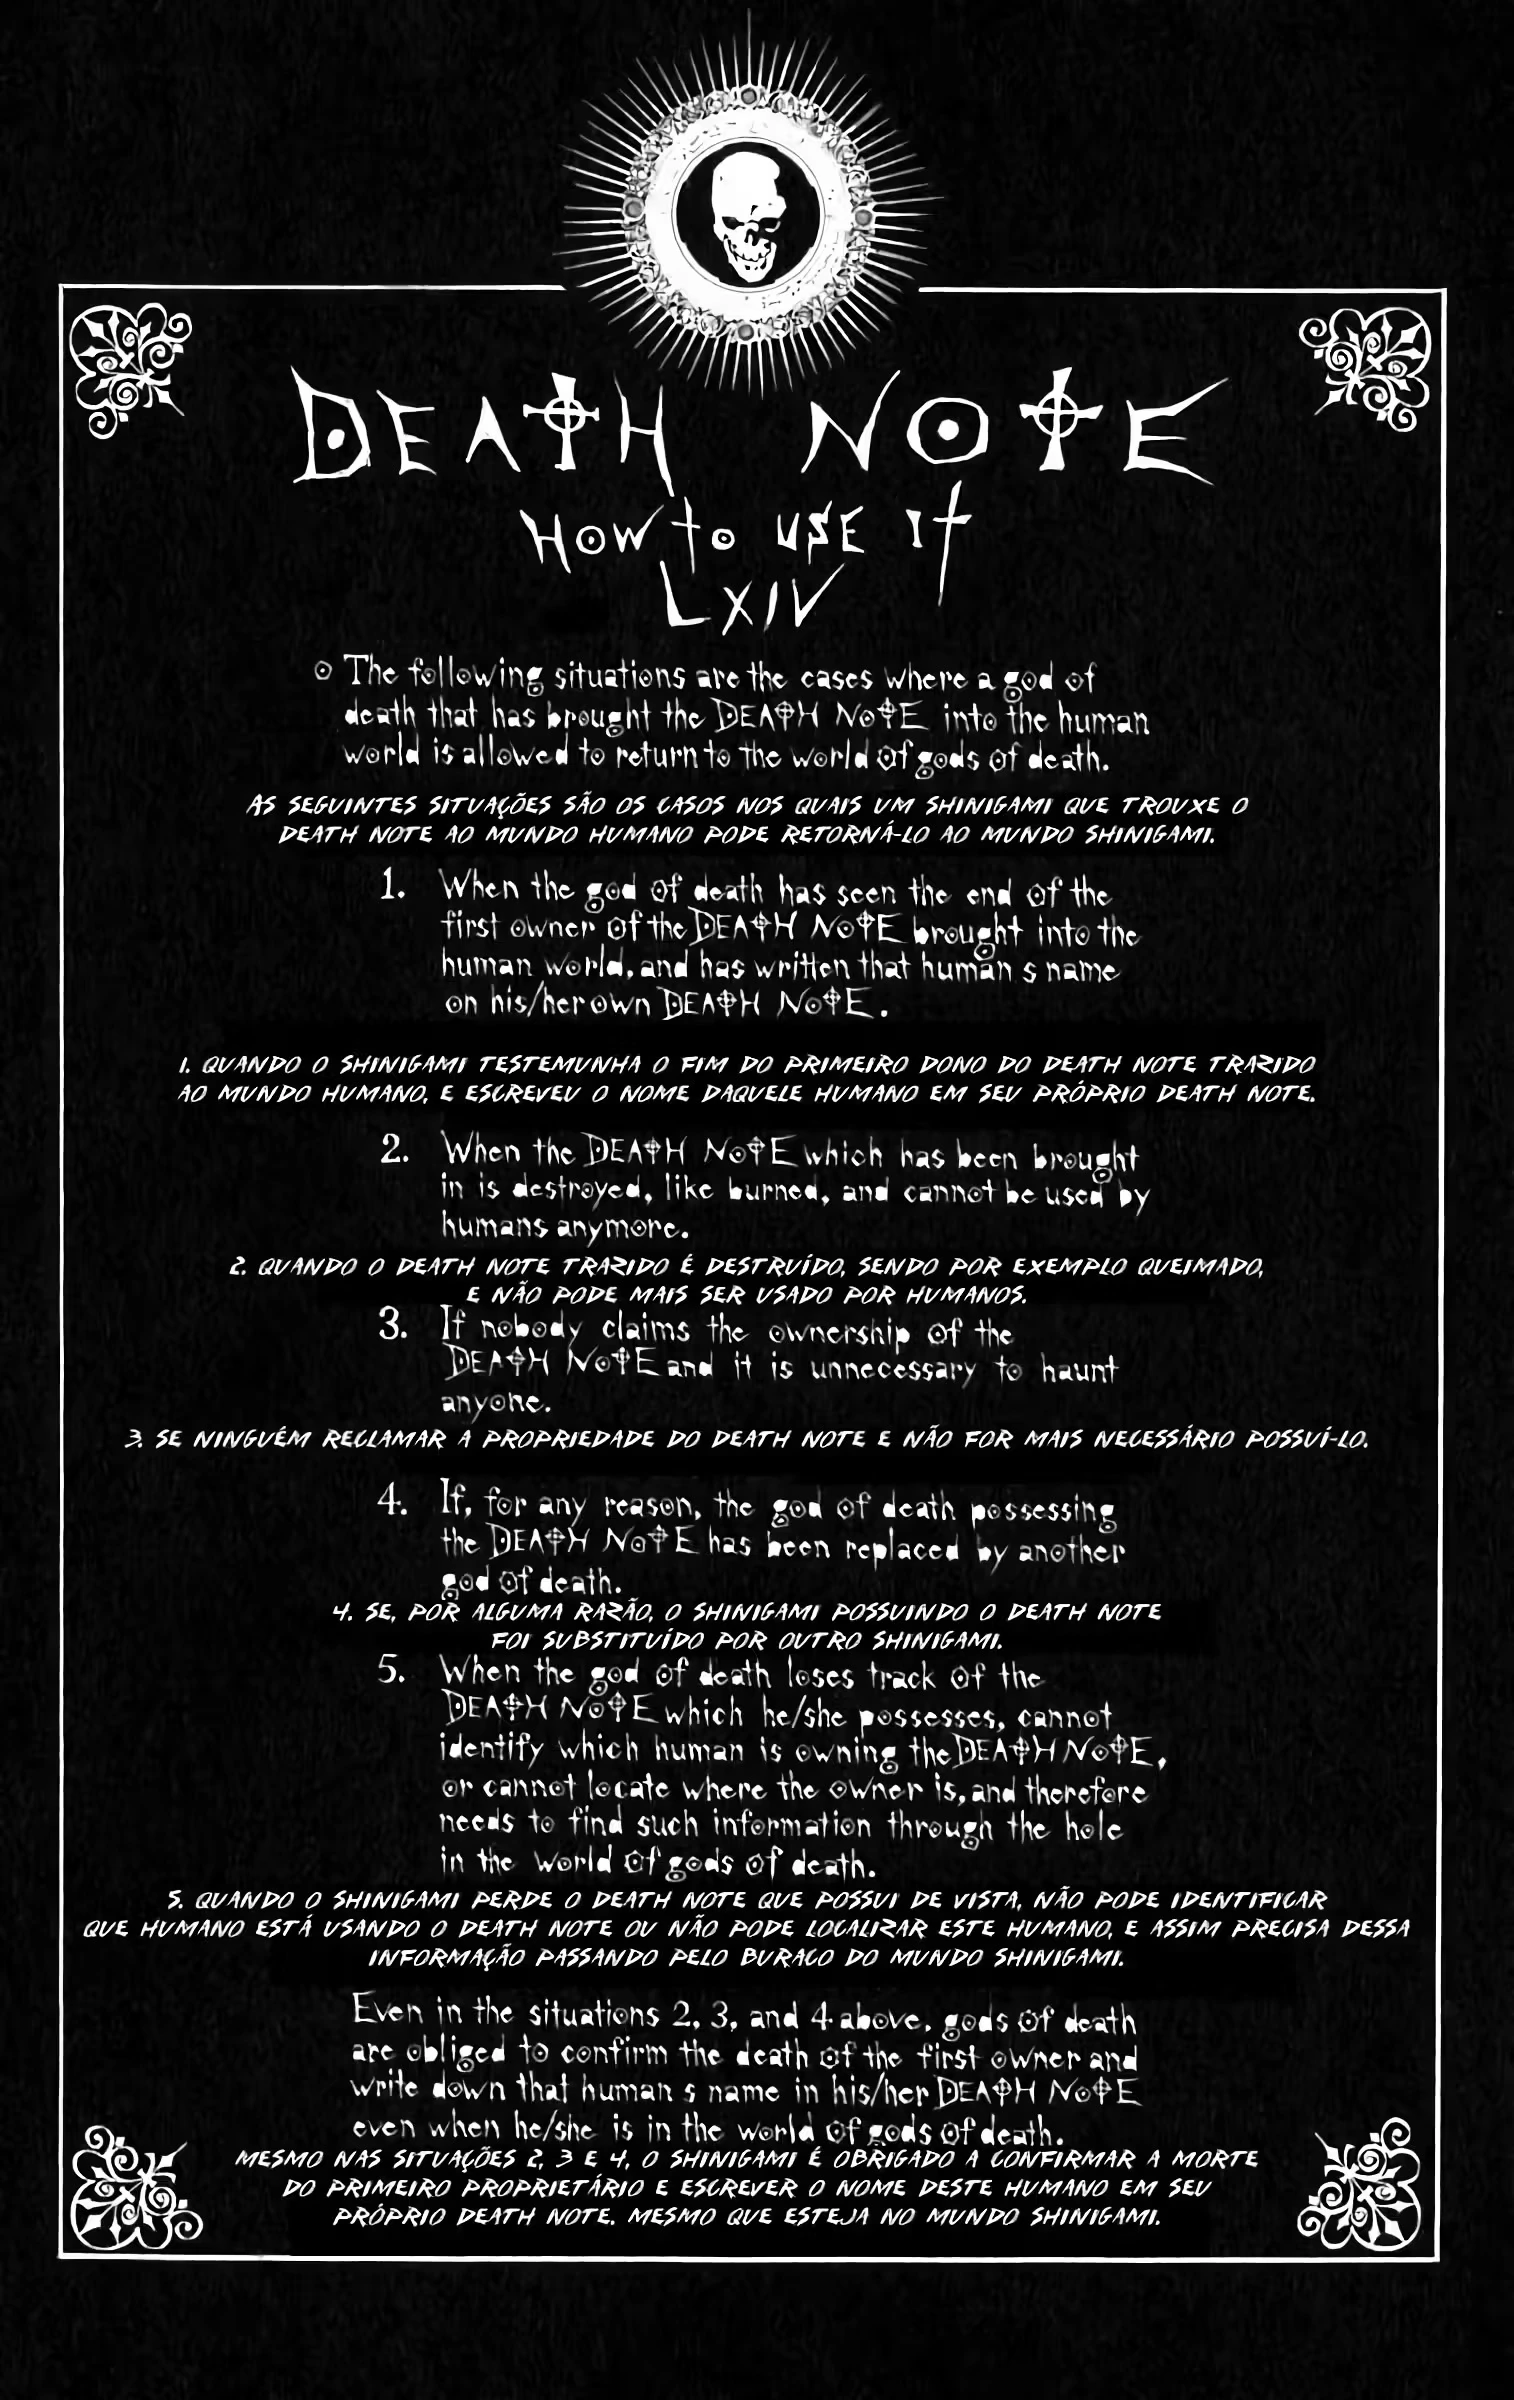 DEATH NOTE
How to use it
LXIV
The following situations are the cases where a god of
death that has brought the DEATH NOTE into the human
world is allowed to return to the world of gods of death.
AS SEGUINTES SITUAÇÕES SÃO OS CASOS NOS QUAIS UM SHINIGAMI QUE TROUXE O
DEATH NOTE AO MUNDO HUMANO PODE RETORNÁ-LO AO MUNDO SHINIGAMI.
1. When the god of death has seen the end of the
first owner of the DEATH NOTE brought into the
human world, and has written that human s name
on his/her own DEATH NOTE.
1. QUANDO O SHINIGAMI TESTEMUNHA O FIM DO PRIMEIRO DONO DO DEATH NOTE TRAZIDO
AO MUNDO HUMANO, E ESCREVEU O NOME DAQUELE HUMANO EM SEU PRÓPRIO DEATH NOTE.
2. When the DEATH NOTE which has been brought
in is destroyed, like burned, and cannot be used by
humans anymore.
2. QUANDO O DEATH NOTE TRAZIDO É DESTRUÍDO, SENDO POR EXEMPLO QUEIMADO,
E NÃO PODE MAIS SER USADO POR HUMANOS.
3. If nobody claims the ownership of the
DEATH NOTE and it is unnecessary to haunt
anyone.
3. SE NINGUÉM RECLAMAR A PROPRIEDADE DO DEATH NOTE E NÃO FOR MAIS NECESSÁRIO POSSUÍ-LO.
4. If, for any reason, the god of death possessing
the DEATH NOTE has been replaced by another
god of death.
4. SE, POR ALGUMA RAZÃO, O SHINIGAMI POSSUINDO O DEATH NOTE
FOI SUBSTITUÍDO POR OUTRO SHINIGAMI.
5. When the god of death loses track of the
DEATH NOTE which he/she possesses, cannot
identify which human is owning the DEATH NOTE,
or cannot locate where the owner is, and therefore
needs to find such information through the hole
in the world of gods of death.
5. QUANDO O SHINIGAMI PERDE O DEATH NOTE QUE POSSUI DE VISTA, NÃO PODE IDENTIFICAR
QUE HUMANO ESTÁ USANDO O DEATH NOTE OU NÃO PODE LOCALIZAR ESTE HUMANO, E ASSIM PRECISA DESSA
INFORMAÇÃO PASSANDO PELO BURACO DO MUNDO SHINIGAMI.
Even in the situations 2, 3, and 4 above, gods of death
are obliged to confirm the death of the first owner and
write down that human s name in his/her DEATH NOTE
even when he/she is in the world of gods of death.
MESMO NAS SITUAÇÕES 2, 3 E 4, O SHINIGAMI É OBRIGADO A CONFIRMAR A MORTE
DO PRIMEIRO PROPRIETÁRIO E ESCREVER O NOME DESTE HUMANO EM SEU
PRÓPRIO DEATH NOTE. MESMO QUE ESTEJA NO MUNDO SHINIGAMI.